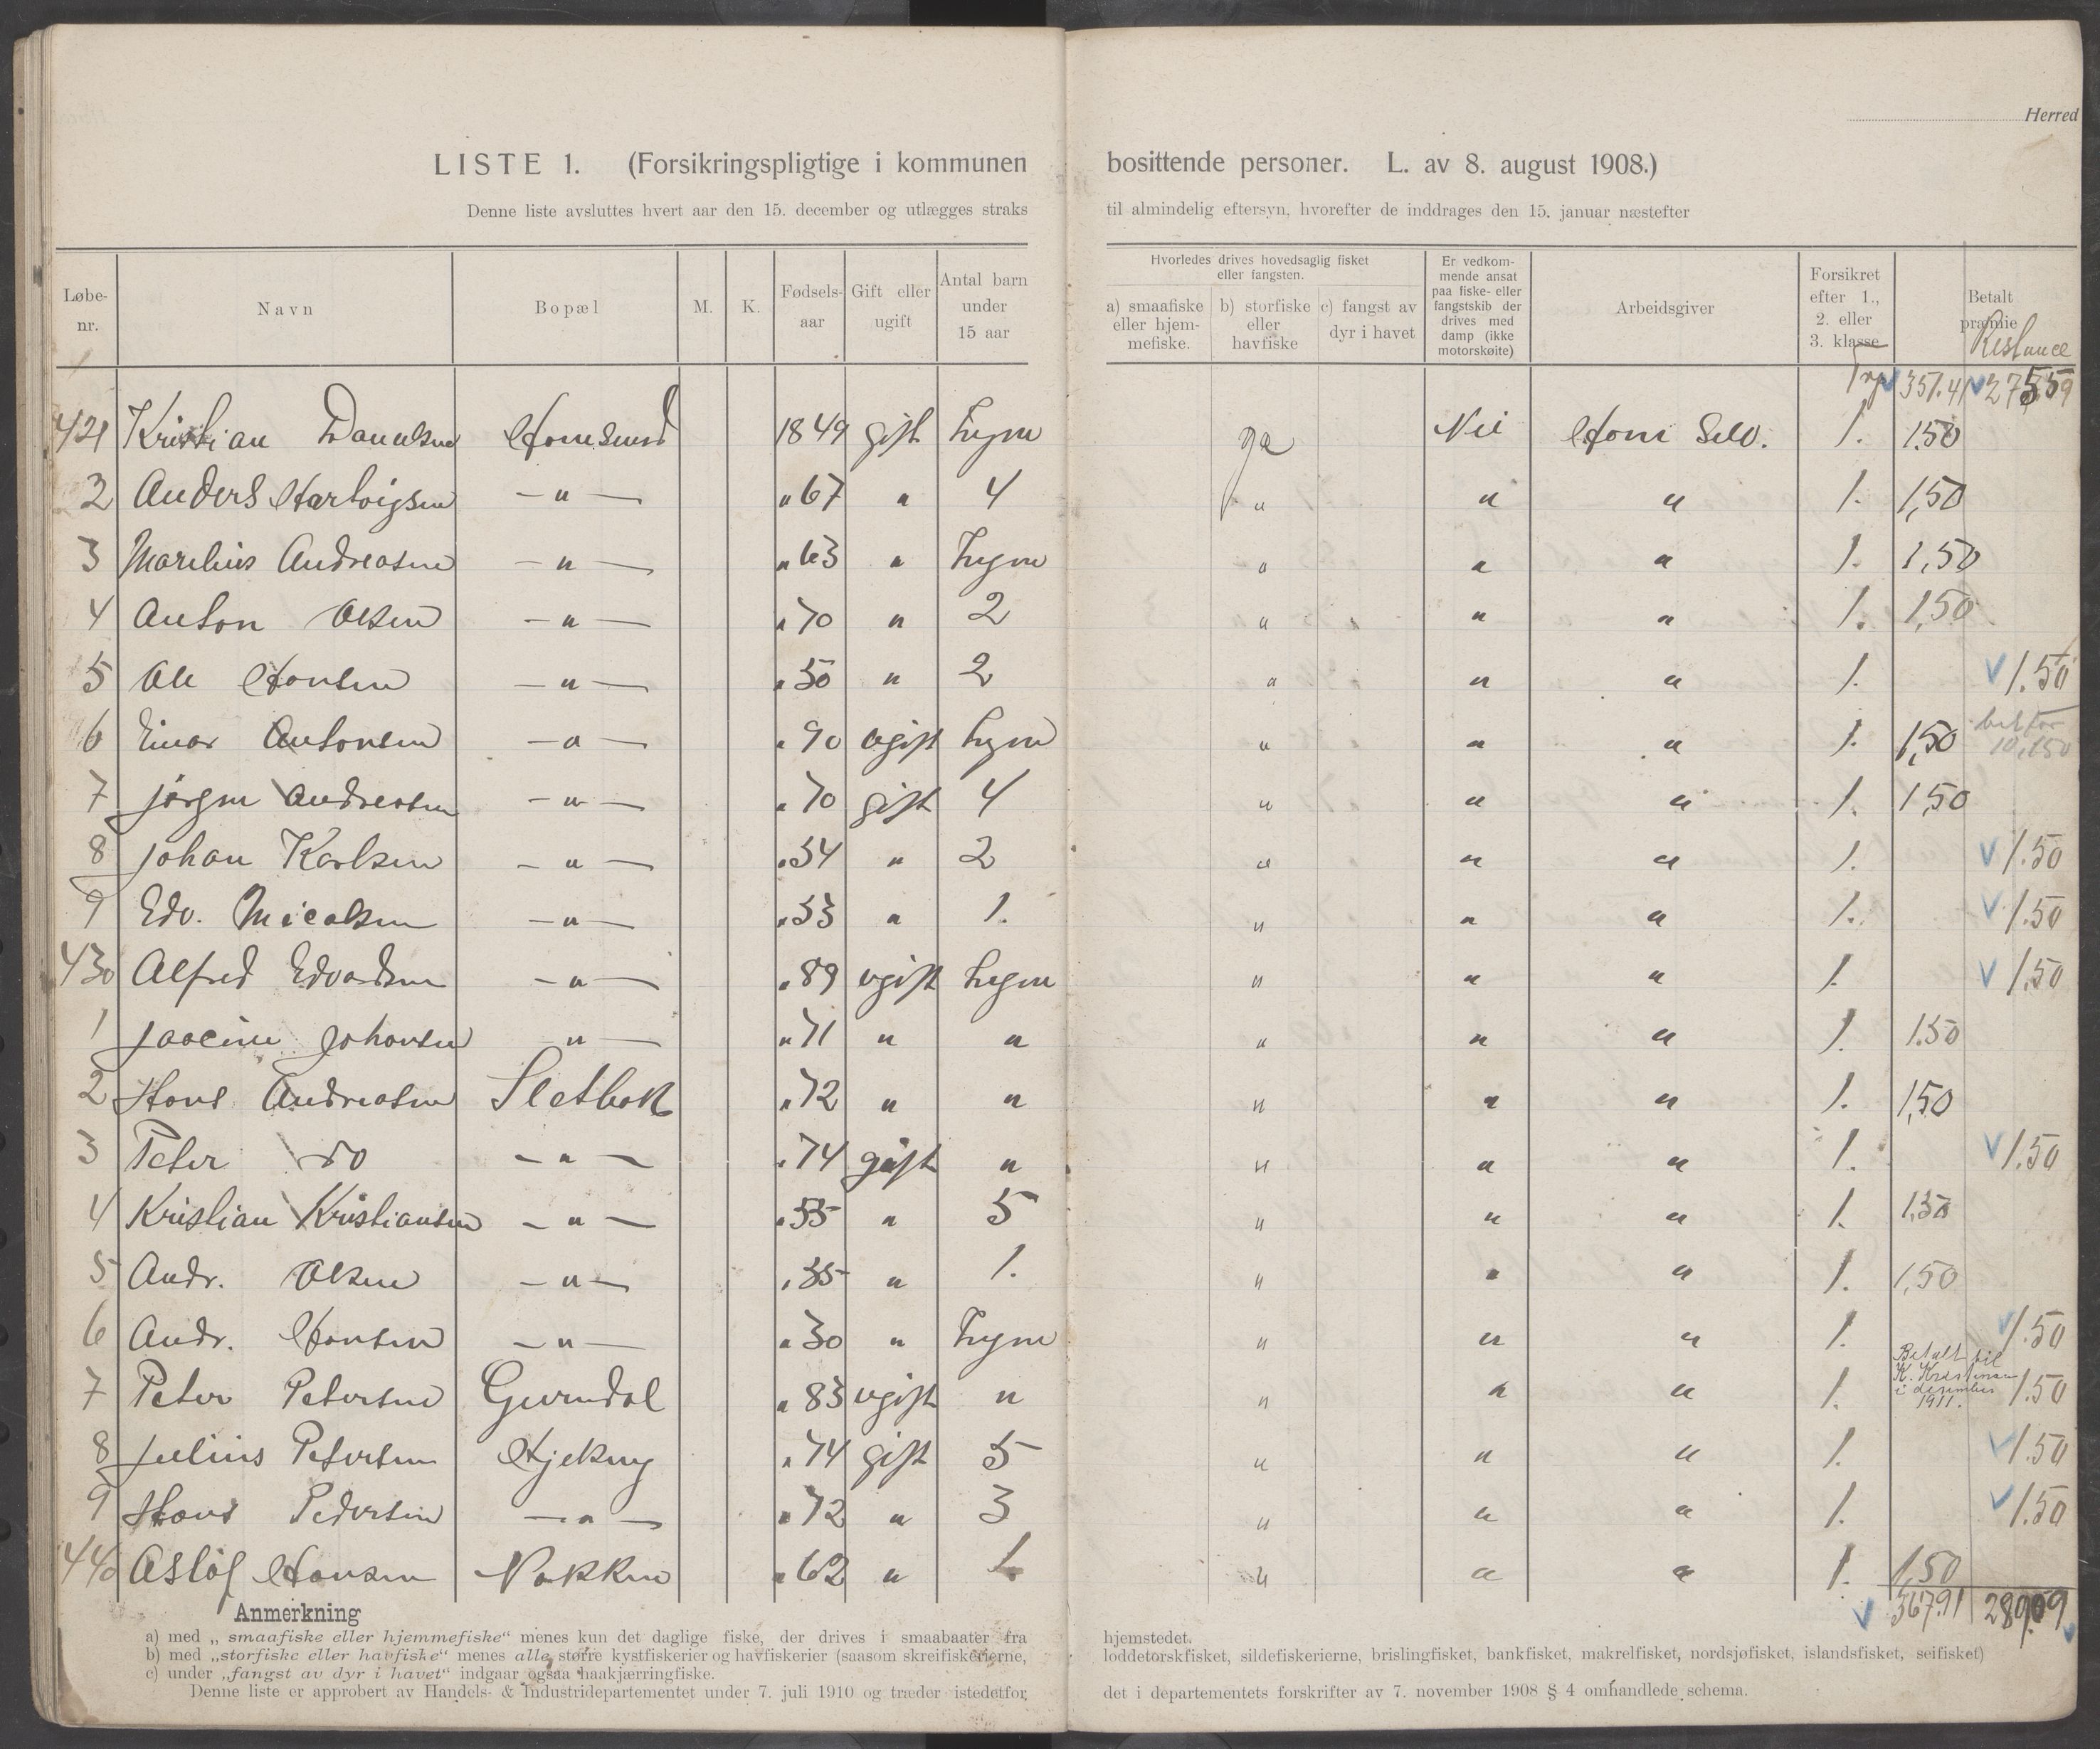 Herred
LISTE 1. (Forsikringspligtige i kommunen bosittende personer. L. av 8. august 1908.)
Denne liste avsluttes hvert aar den 15. december og utlægges straks til almindelig eftersyn, hvorefter de inddrages den 15. januar næstefter
Løbe-nr. Navn Bopæl M. K. Fødsels-aar Gift eller ugift Antal barn under 15 aar Hvorledes drives hovedsaglig fisket eller fangsten. a) smaafiske eller hjem-mefiske. b) storfiske eller havfiske c) fangst av dyr i havet Er vedkom-mende ansat paa fiske- eller fangstskib der drives med damp (ikke motorskøite) Arbeidsgiver Forsikret efter 1., 2. eller 3. klasse Betalt præmie Restance
351.41 275.59
421 Kristian Danielsen 1849 gift Ingen ja Nei Som Selv. 1. 1.50
2 Anders Hartvigsen — " — " 67 " 4 " " " 1. 1,50
3 Marelius Andreasen — " — " 63 " Ingen " " " 1. 1,50
4 Anton Olsen — " — " 70 " 2 " " " 1. 1,50
5 Ole Hansen — " — " 50 " 2 " " " 1. 1.50
6 Einar Antonsen — " — " 90 ugift Ingen " " " 1. 1,50
7 Jørgen Andreasen — " — " 70 gift 4 " " " 1. 1,50
8 Johan Karlsen — " — " 54 " 2 " " " 1. 1.50
9 Edv. Micalsen — " — " 53 " 1. " " " 1. 1.50
430 Alfred Edvardsen — " — " 89 ugift Ingen " " " 1. 1.50
1 Johansen — " — " 71 " " " " " 1. 1.50
2 Hans Andreasen Sletbak " 72 " " " " " 1. 1,50
3 Peter do — " — " 74 gift " " " " 1. 1.50
4 Kristian Kristiansen — " — " 55 " 5 " " " 1. 1.50
5 Andr. Olsen — " — " 55 " 1. " " " 1. 1,50
6 Andr. Hansen — " — " 30 " Ingen " " " 1. 1.50
7 Peter Petersen " 83 ugift " " " " 1. Betalt til K. Kristiansen i desember 1911. 1.50
8 Julius Petersen " 74 gift 5 " " " 1. 1.50
9 Hans Pedersen — " — " 72 " 3 " " " 1. 1.50
440 Asløf Hansen Nakken " 62 " 1. " " " 1. 1,50
367.91 289.09
Anmerkning
a) med „smaafiske eller hjemmefiske“ menes kun det daglige fiske, der drives i smaabaater fra hjemstedet.
b) med „storfiske eller havfiske“ menes alle større kystfiskerier og havfiskerier (saasom skreifiskerierne, loddetorskfisket, sildefiskerierne, brislingfisket, bankfisket, makrelfisket, nordsjøfisket, islandsfisket, seifisket)
c) under „fangst av dyr i havet“ indgaar ogsaa haakjærringfiske.
Denne liste er approbert av Handels- & Industridepartementet under 7. juli 1910 og træder istedetfor det i departementets forskrifter av 7. november 1908 § 4 omhandlede schema.